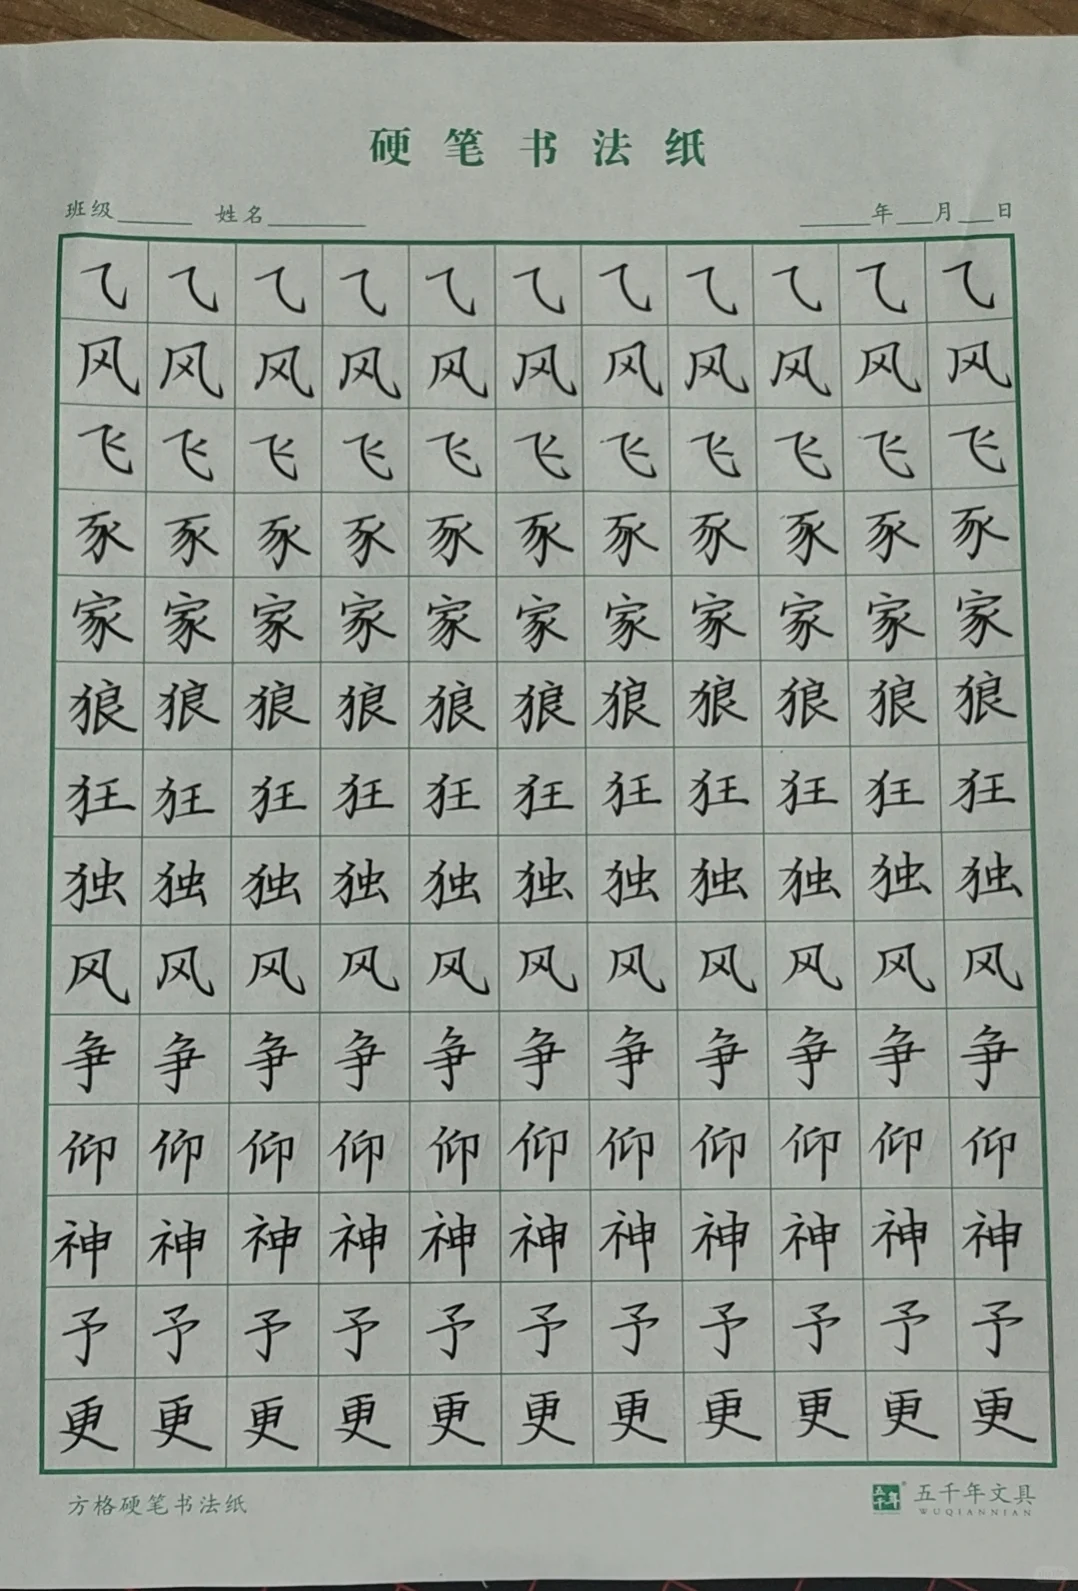 硬笔书法纸
班级 姓名 年 月 日
⺄⺄⺄⺄⺄⺄⺄⺄⺄⺄⺄
风风风风风风风风风风风
飞飞飞飞飞飞飞飞飞飞飞
豕豕豕豕豕豕豕豕豕豕豕
家家家家家家家家家家家
狼狼狼狼狼狼狼狼狼狼狼
狂狂狂狂狂狂狂狂狂狂狂
独独独独独独独独独独独
风风风风风风风风风风风
争争争争争争争争争争争
仰仰仰仰仰仰仰仰仰仰仰
神神神神神神神神神神神
予予予予予予予予予予予
更更更更更更更更更更更
方格硬笔书法纸 五千年 五千年文具
WUQIANNIAN